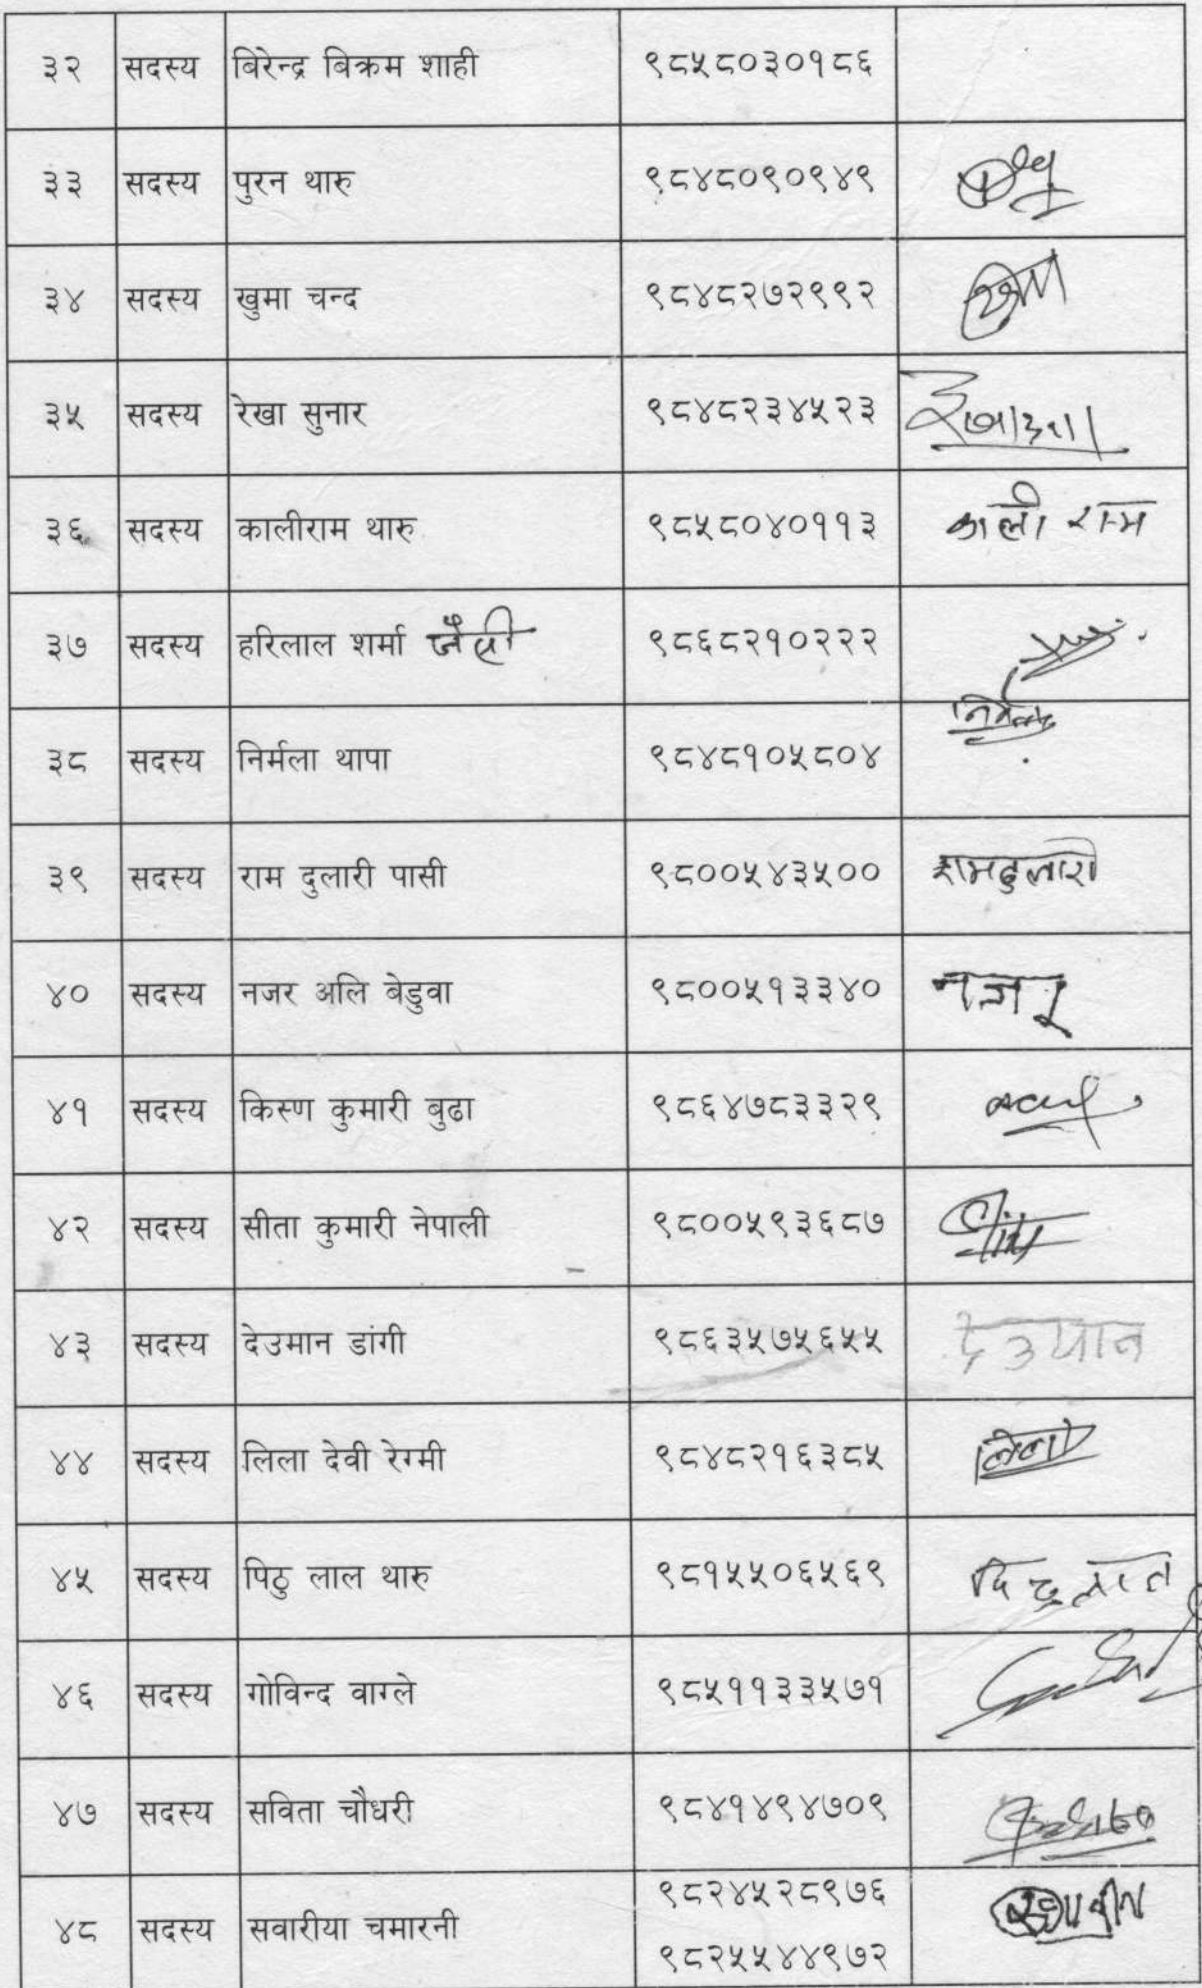 ३२ सदस्य बिरेन्द्र बिक्रम शाही ९८५८०३०१८६
३३ सदस्य पुरन थारु ९८४८०९०९४९
३४ सदस्य खुमा चन्द ९८४८२७२९९२
३५ सदस्य रेखा सुनार ९८४८२३४५२३
३६ सदस्य कालीराम थारु ९८५८०४०११३ काली राम
३७ सदस्य हरिलाल शर्मा जैसी ९८६८२१०२२२
३८ सदस्य निर्मला थापा ९८४८१०५८०४ निर्मला
३९ सदस्य राम दुलारी पासी ९८००५४३५०० रामदुलारी
४० सदस्य नजर अलि बेडुवा ९८००५१३३४० नजर
४१ सदस्य किस्ण कुमारी बुढा ९८६४७८३३२९
४२ सदस्य सीता कुमारी नेपाली ९८००५९३६८७
४३ सदस्य देउमान डांगी ९८६३५७५६५५ देउमान
४४ सदस्य लिला देवी रेग्मी ९८४८२१६३८५ लिला
४५ सदस्य पिठु लाल थारु ९८१५५०६५६९
४६ सदस्य गोविन्द वाग्ले ९८५११३३५७१
४७ सदस्य सविता चौधरी ९८४१४९४७०९
४८ सदस्य सवारीया चमारनी ९८२४५२८९७६
९८२५५४४९७२